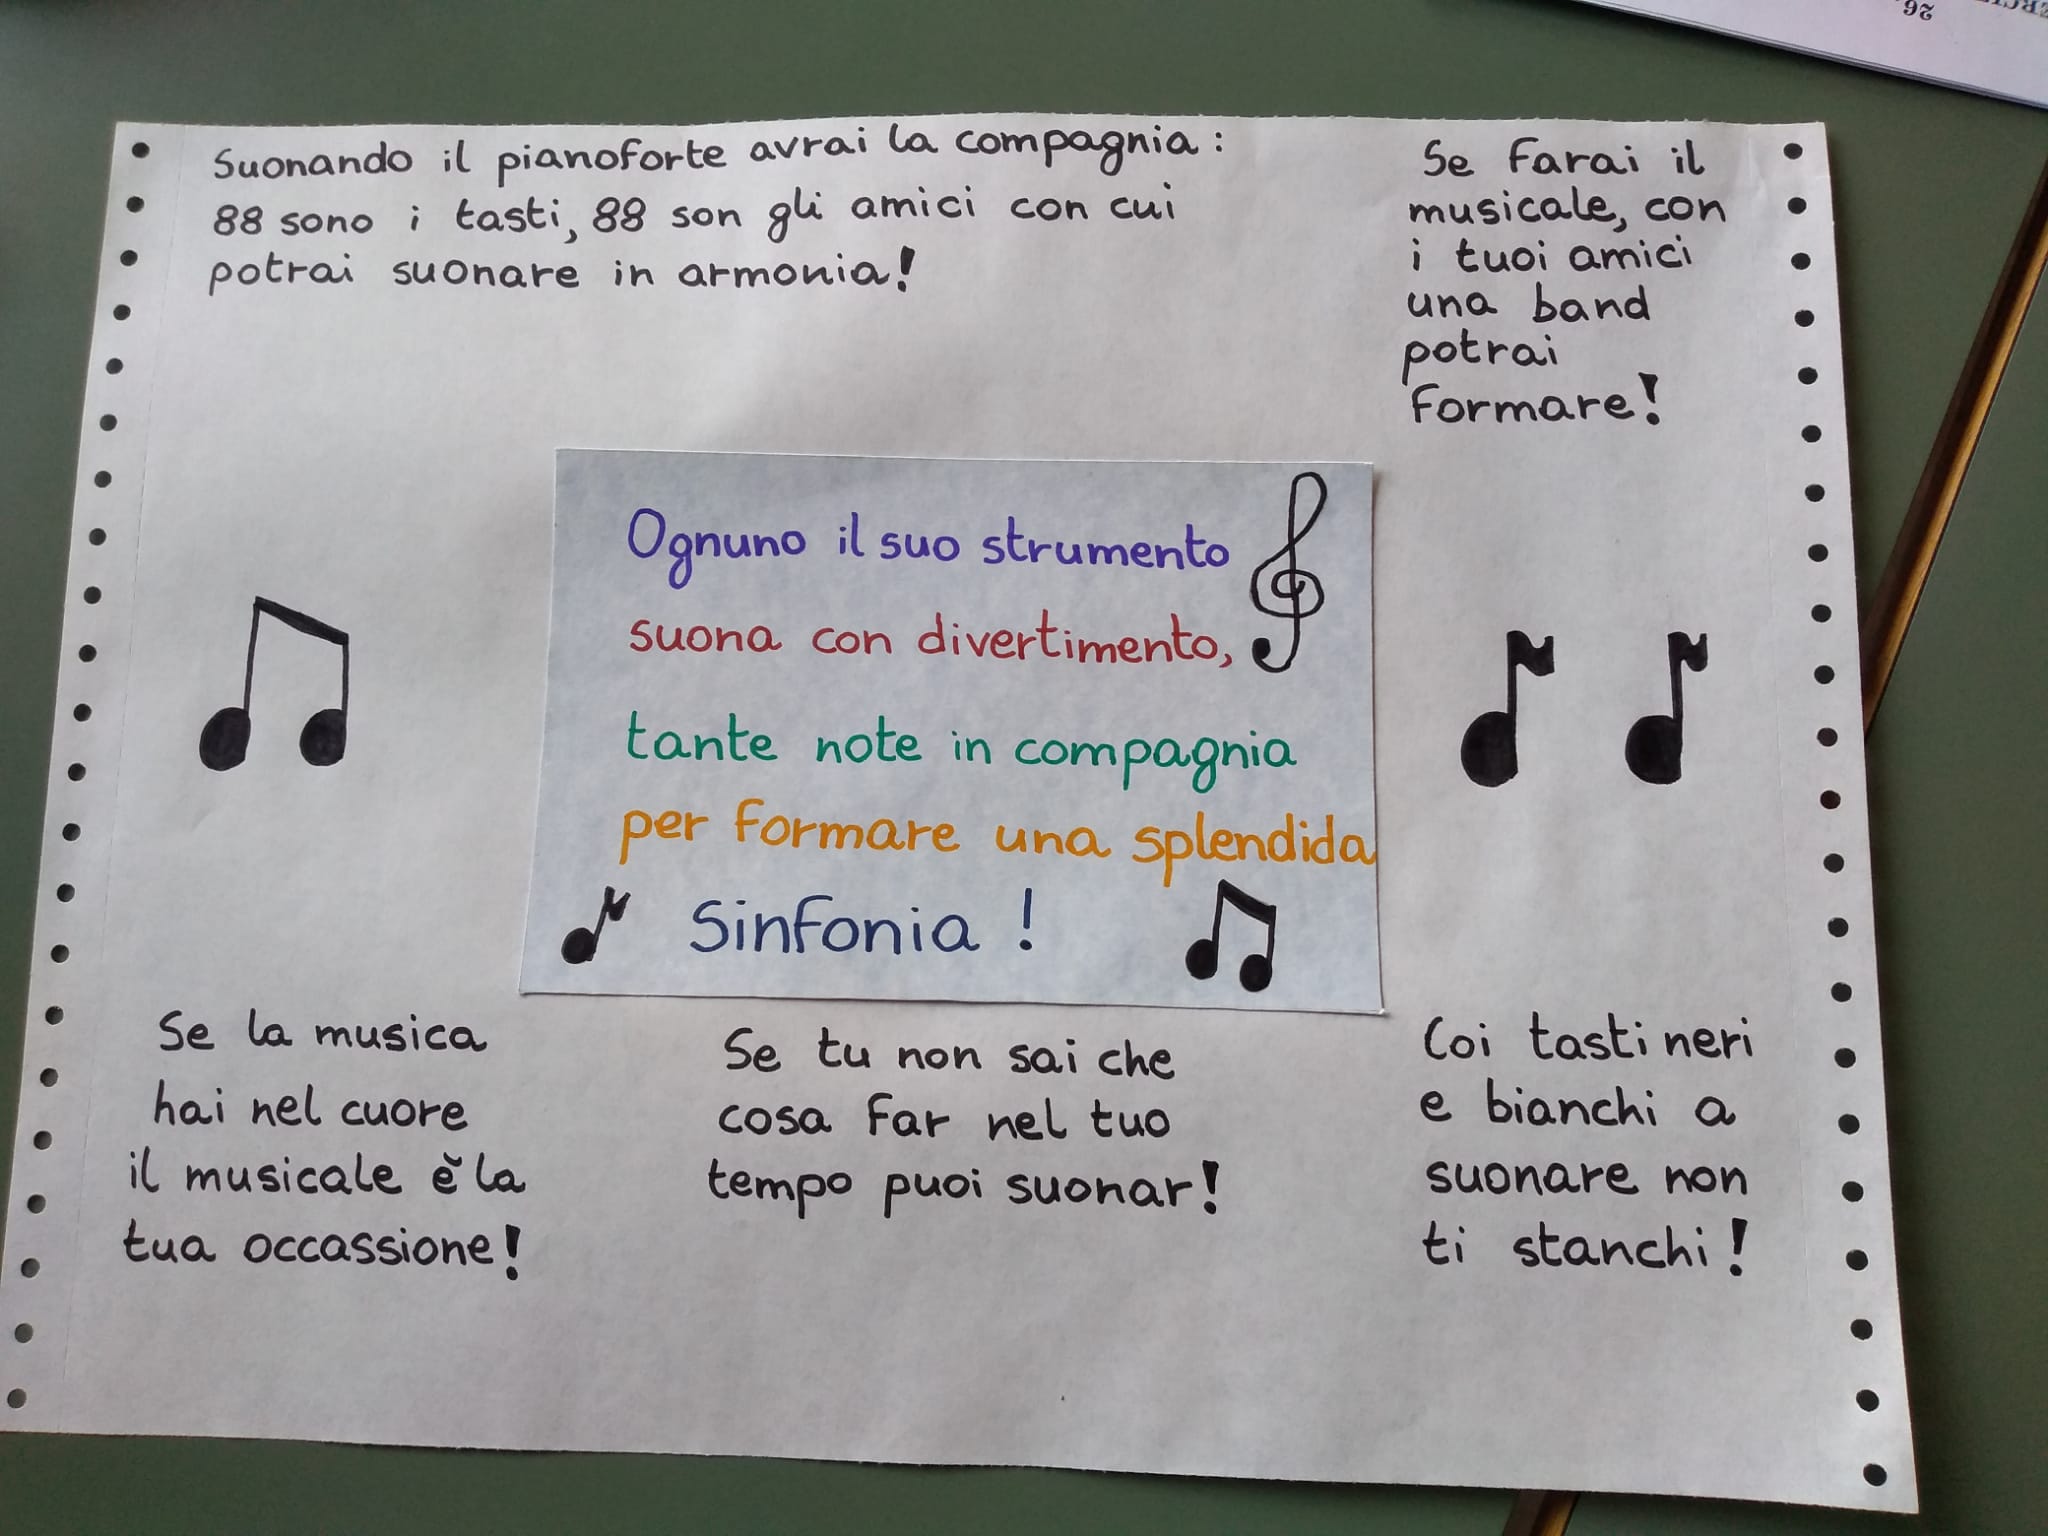 Suonando il pianoforte avrai la compagnia:
88 sono i tasti, 88 son gli amici con cui
potrai suonare in armonia!
Se farai il
musicale, con
i tuoi amici
una band
potrai
formare!
Ognuno il suo strumento
suona con divertimento,
tante note in compagnia
per formare una splendida
Sinfonia !
Se la musica
hai nel cuore
il musicale è la
tua occassione!
Se tu non sai che
cosa far nel tuo
tempo puoi suonar!
Coi tasti neri
e bianchi a
suonare non
ti stanchi!
26